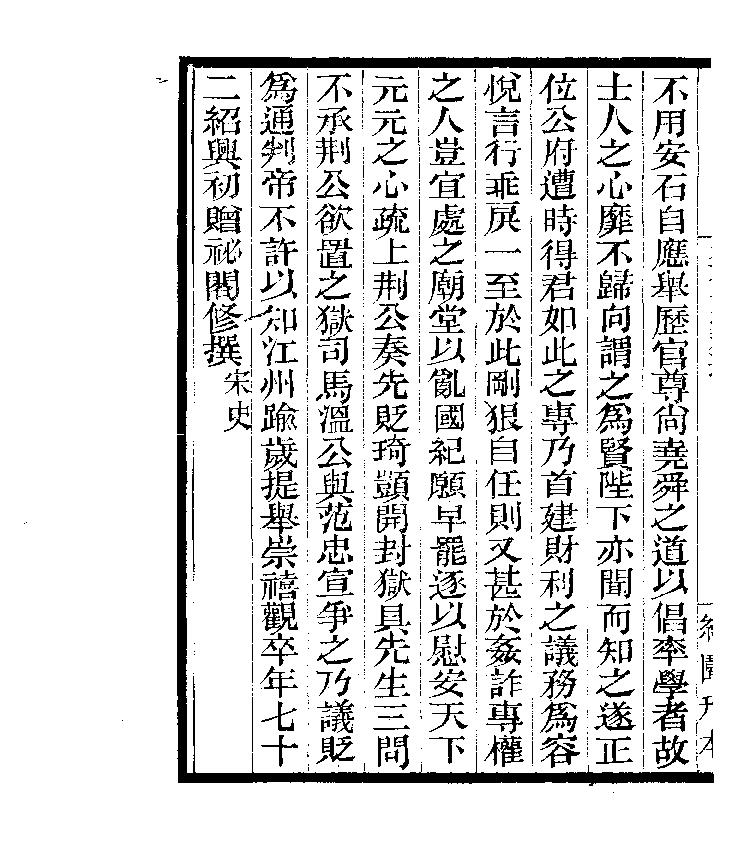 不用安石自應舉歷官尊尚堯舜之道以倡率學者故
士人之心靡不歸向謂之爲賢陛下亦聞而知之遂正
位公府遭時得君如此之專乃首建財利之議務爲容
悅言行乖戾一至於此剛狠自任則又甚於姦詐專權
之人豈宜處之廟堂以亂國紀願早罷逐以慰安天下
元元之心疏上荆公奏先貶琦顗開封獄具先生三問
不承荆公欲置之獄司馬溫公與范忠宣爭之乃議貶
爲通判帝不許以知江州踰歲提舉崇禧觀卒年七十
二紹興初贈祕閣修撰宋史